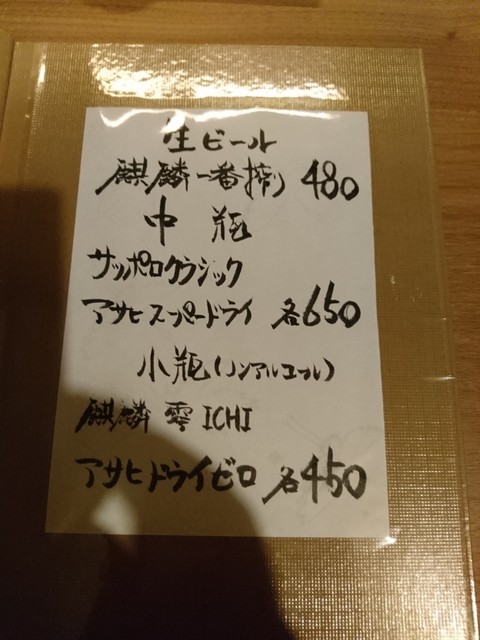 生ビール
麒麟一番搾り 480
中瓶
サッポロクラシック
アサヒスーパードライ 各650
小瓶(ノンアルコール)
麒麟 零ICHI
アサヒドライゼロ 各450